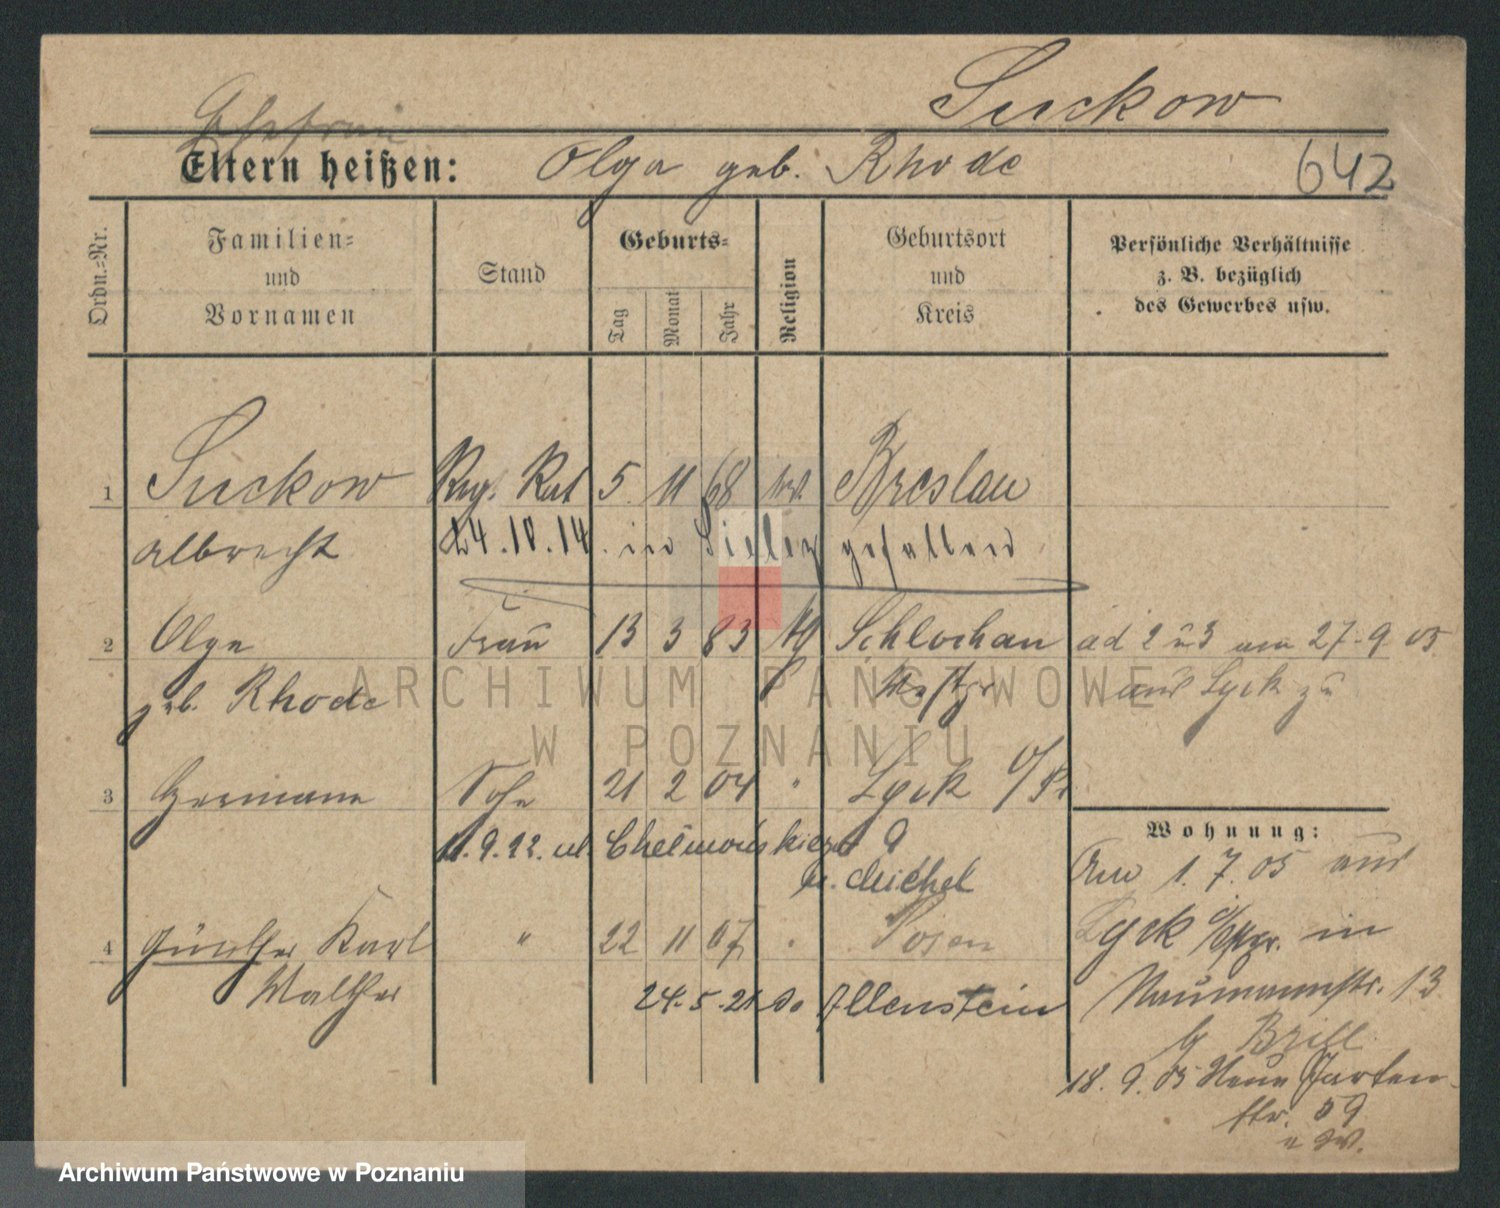 Suckow
Ehefrau
Eltern heißen: Olga geb. Rhode 642
Ordn.-Nr.
Familien-
und
Vornamen
Stand
Geburts-
Tag
Monat
Jahr
Religion
Geburtsort
und
Kreis
Persönliche Verhältnisse
z. B. bezüglich
des Gewerbes usw.
1 Suckow Reg. Rat 5. 11 68 ev. Breslau
Albrecht 24.10.14. in gefallen
2 Olga Frau 13 3 83 Schlochau ad 2 u 3 am 27.9.05
geb. Rhode Westpr aus Lyck zu
3 Hermann Sohn 21 2 04 " Lyck O/Pr
Wohnung:
11.9.22. ul. 9
b. Michel
Am 1.7.05 aus
4 Günther Karl " 22 11 07 " Posen
Lyck O/Pr. in
Walther
24.5.21 do Allenstein
Naumannstr. 13
b Brill
18.9.05 Neue Garten-
str. 59
ARCHIWUM PAŃSTWOWE
W POZNANIU
Archiwum Państwowe w Poznaniu